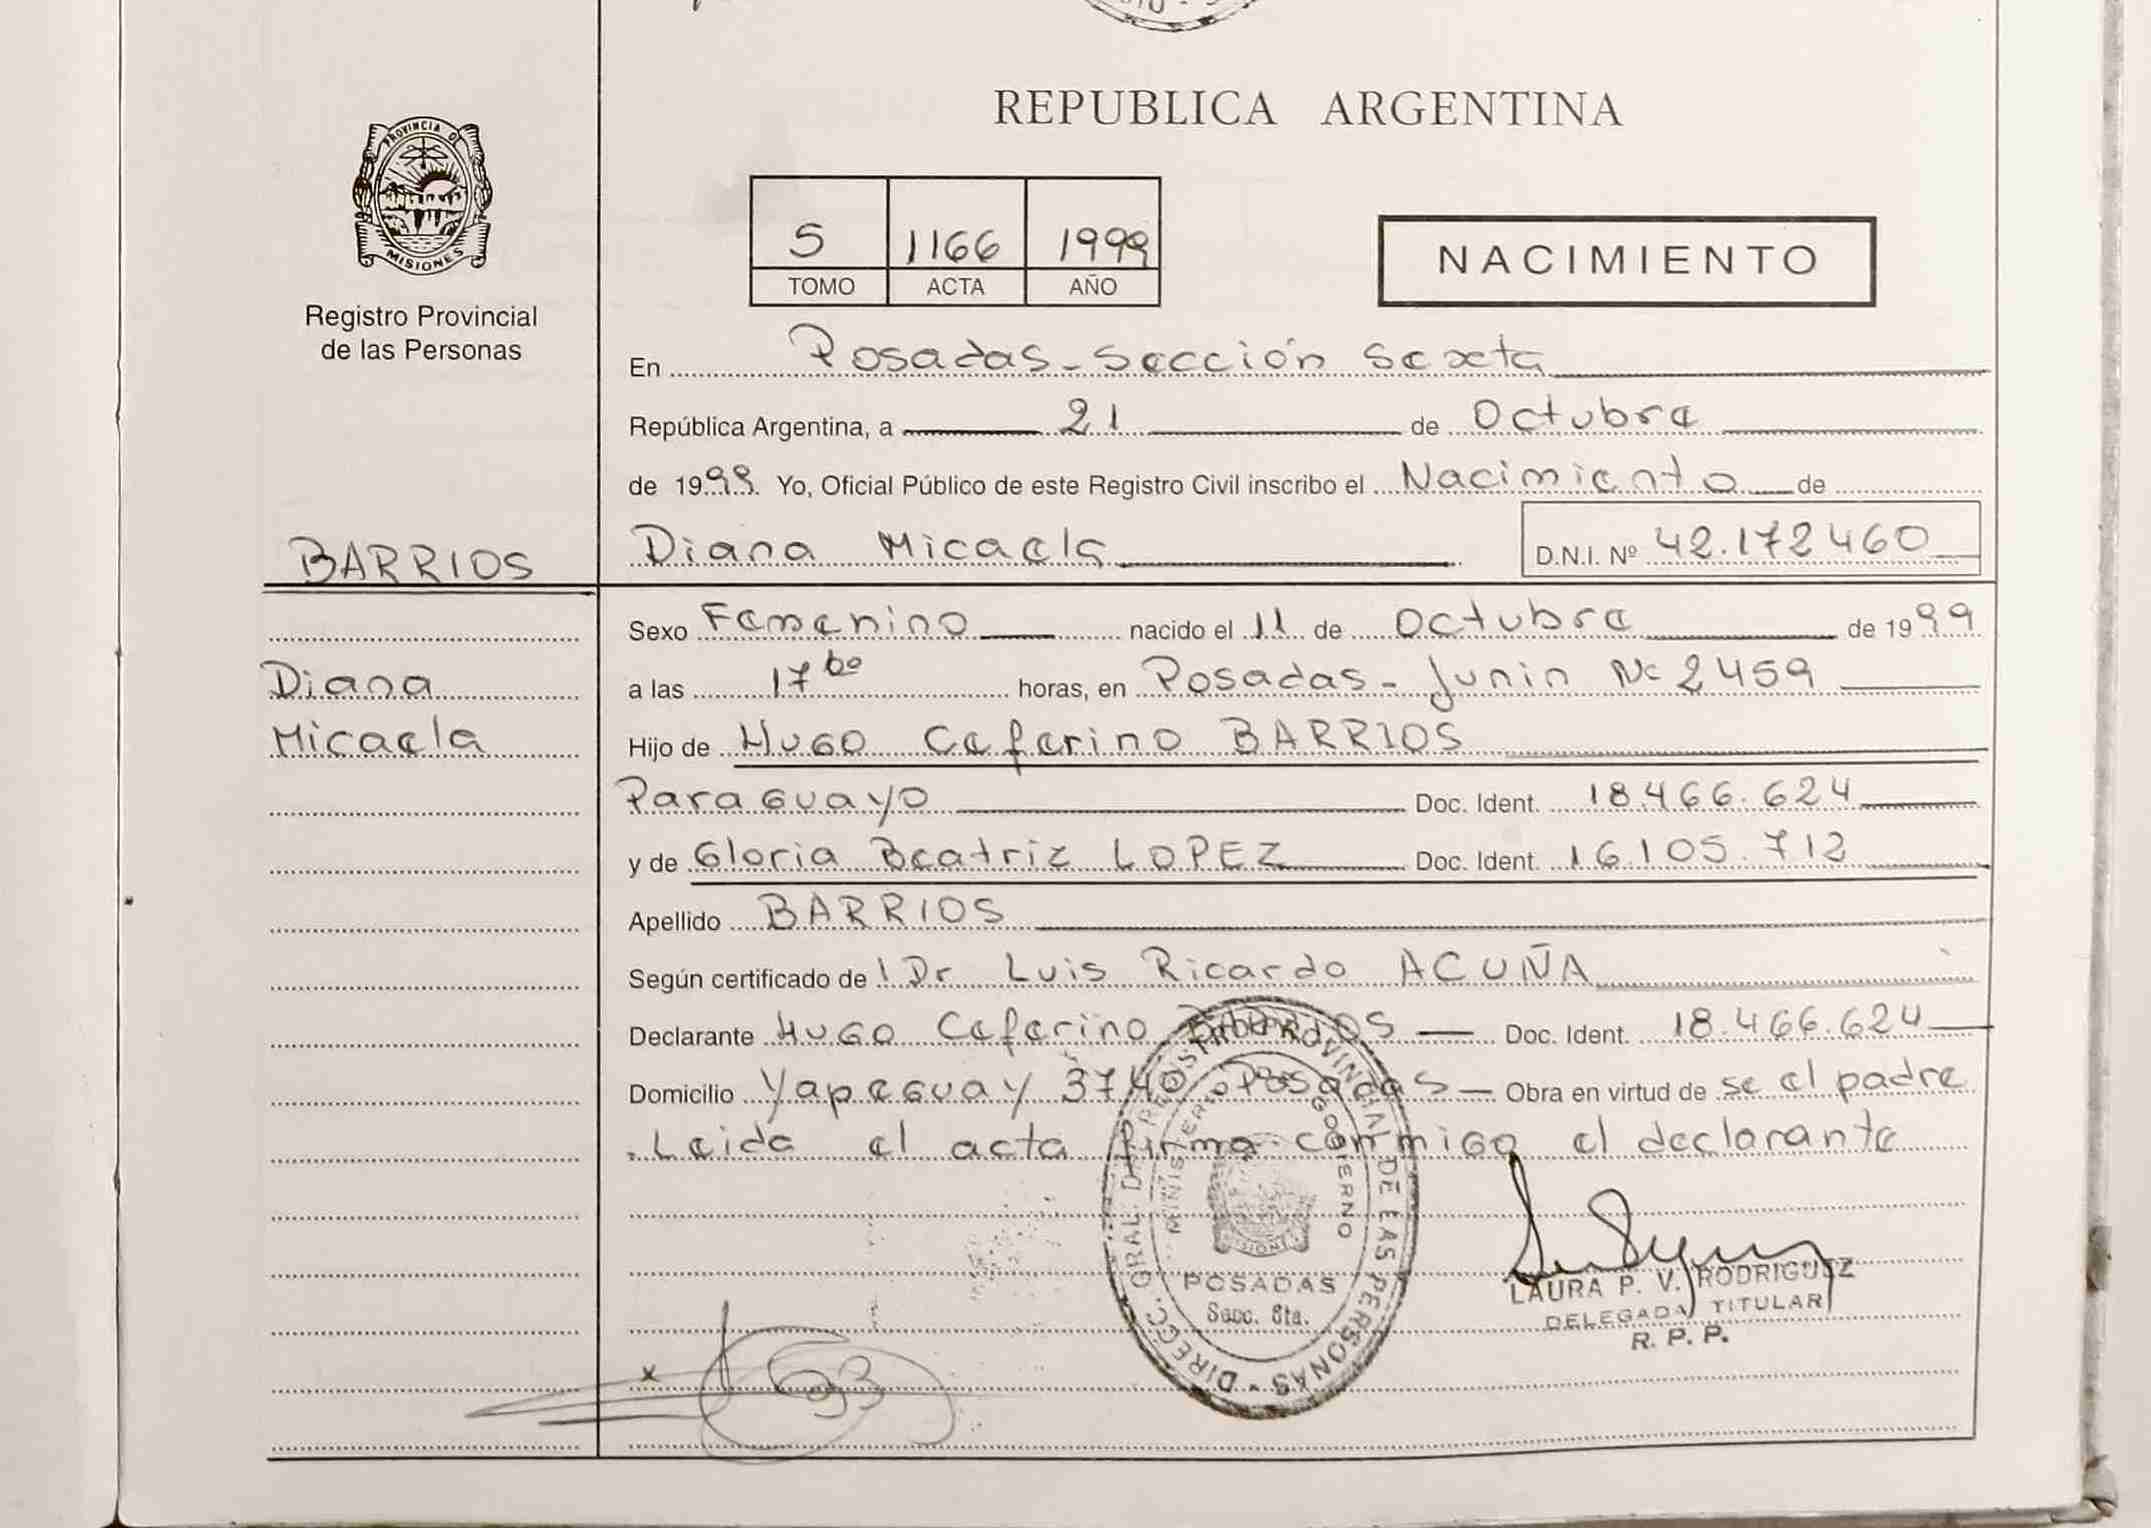 REPUBLICA ARGENTINA
PROVINCIA DE
MISIONES
Registro Provincial
de las Personas
5 1166 1999
TOMO ACTA AÑO
NACIMIENTO
En Posadas - Sección Sexta
República Argentina, a 21 de Octubre
de 1999. Yo, Oficial Público de este Registro Civil inscribo el Nacimiento de
BARRIOS
Diana Micaela D.N.I. Nº 42.172460
Sexo Femenino nacido el 11 de Octubre de 1999
Diana
a las 17 horas, en Posadas - Junin Nº 2459
Micaela
Hijo de HUGO Ceferino BARRIOS
Paraguayo Doc. Ident. 18.466.624
y de Gloria Beatriz LOPEZ Doc. Ident. 16.105.712
Apellido BARRIOS
Según certificado de Dr Luis Ricardo ACUÑA
Declarante HUGO Ceferino BARRIOS Doc. Ident. 18.466.624
Domicilio Yapeguay 3740 Posadas Obra en virtud de se el padre
Leida el acta firma conmigo el declarante
DIRECC. GRAL. DE REGISTRO PROVINCIAL DE LAS PERSONAS
MINISTERIO GOBIERNO
MISIONES
POSADAS
Secc. 6ta.
LAURA P. V. RODRIGUEZ
DELEGADA TITULAR
R. P. P.
x